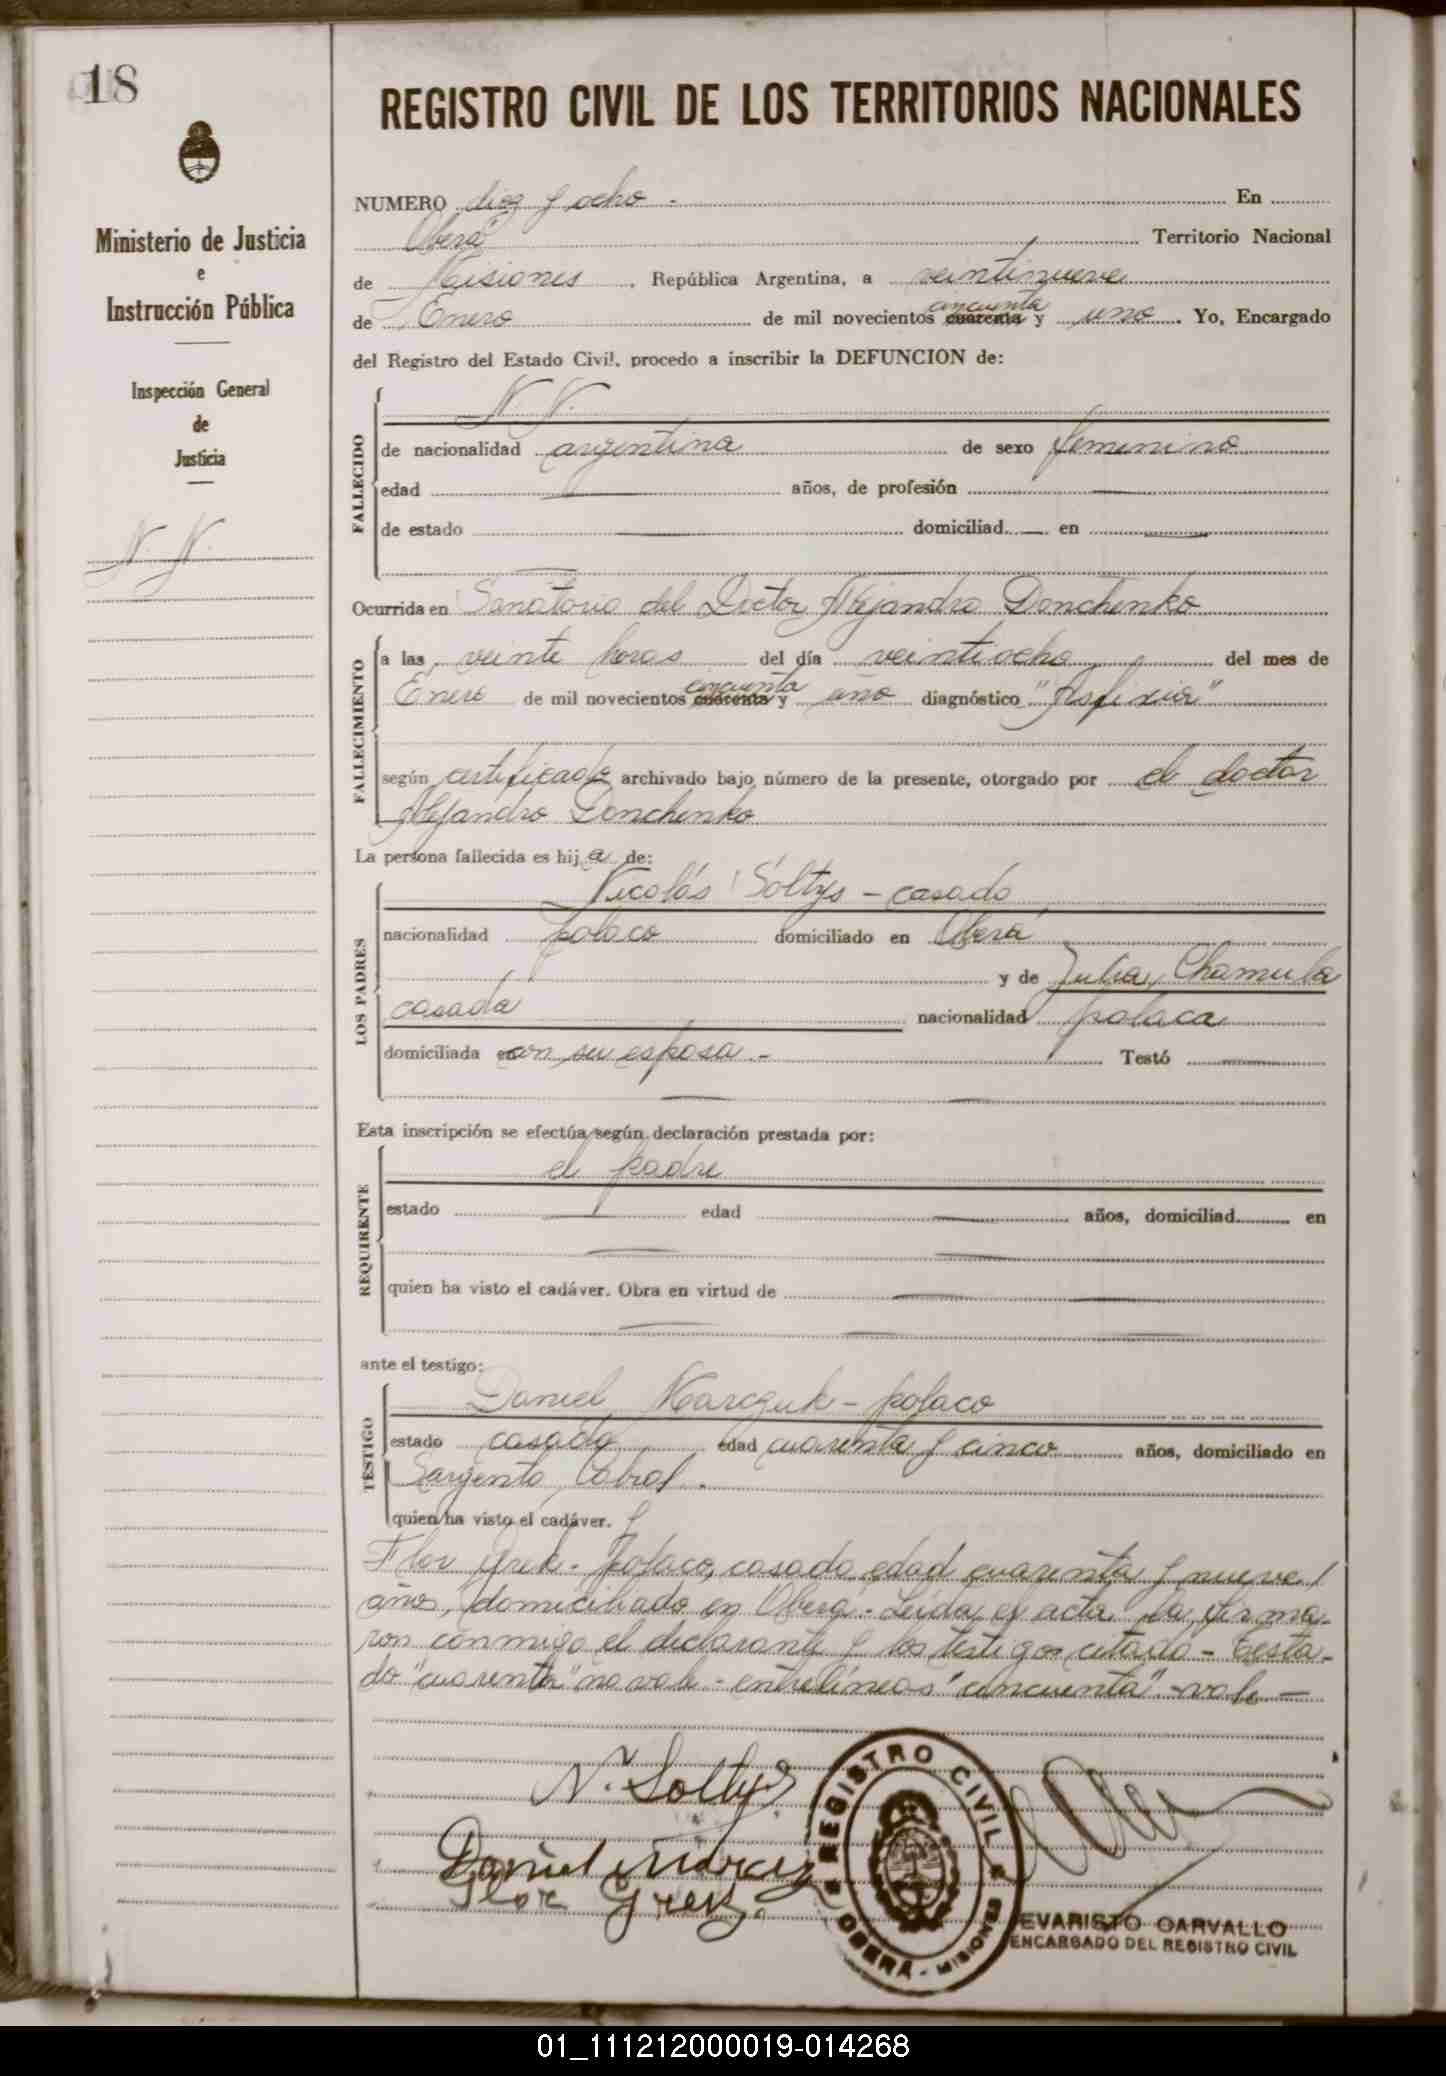 18
REGISTRO CIVIL DE LOS TERRITORIOS NACIONALES
Ministerio de Justicia
e
Instrucción Pública
Inspección General
de
Justicia
N. N.
NUMERO diez y ocho - En
Oberá Territorio Nacional
de Misiones, República Argentina, a veintinueve
de Enero de mil novecientos cincuenta cuarenta y uno. Yo, Encargado
del Registro del Estado Civil, procedo a inscribir la DEFUNCION de:
FALLECIDO
N. N.
de nacionalidad argentina de sexo femenino
edad — años, de profesión —
de estado — domiciliad — en —
Ocurrida en Sanatorio del Doctor Alejandro Donchenko
FALLECIMIENTO
a las veinte horas del día veintiocho del mes de
Enero de mil novecientos cincuenta cuarenta y uno diagnóstico "Asfixia"
según certificado archivado bajo número de la presente, otorgado por el doctor
Alejandro Donchenko
La persona fallecida es hija de:
LOS PADRES
Nicolás Soltys - casado
nacionalidad polaco domiciliado en Oberá
y de Julia Chamula
casada nacionalidad polaca
domiciliada en con su esposo - Testó —
Esta inscripción se efectúa según declaración prestada por:
REQUIRENTE
el padre
estado — edad — años, domiciliad en
quien ha visto el cadáver. Obra en virtud de —
ante el testigo:
TESTIGO
Daniel Marczuk - polaco
estado casado edad cuarenta y cinco años, domiciliado en
Sargento Cabral.
quien ha visto el cadáver. y
Flor - polaco, casado edad cuarenta y nueve
años, domiciliado en Oberá - Leída el acta la firma-
ron conmigo el declarante y los testigos citado - Testa-
do "cuarenta" no vale - entrelíneas "cincuenta" - vale -
N. Soltys
Daniel
Flor
REGISTRO CIVIL
OBERÁ - MISIONES
EVARISTO CARVALLO
ENCARGADO DEL REGISTRO CIVIL
01_111212000019-014268